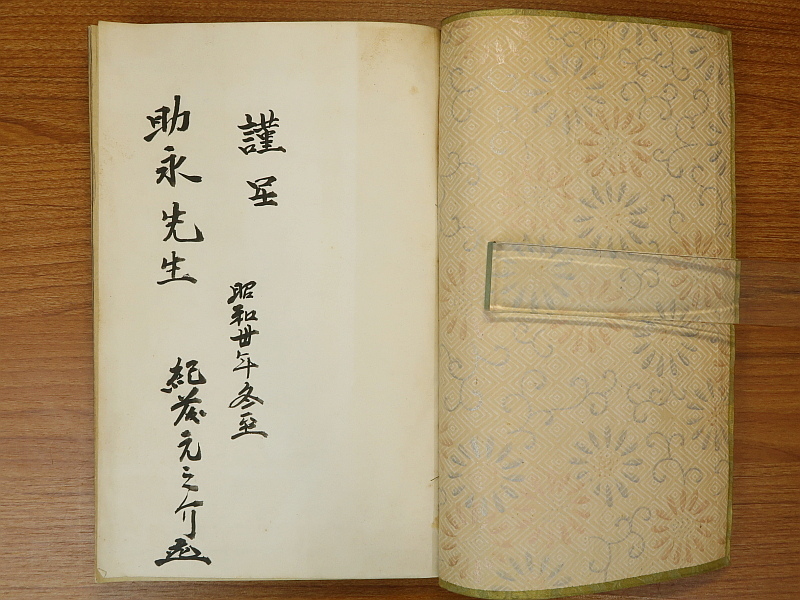 謹呈
昭和卅年冬至
助永先生
紀藤元之介